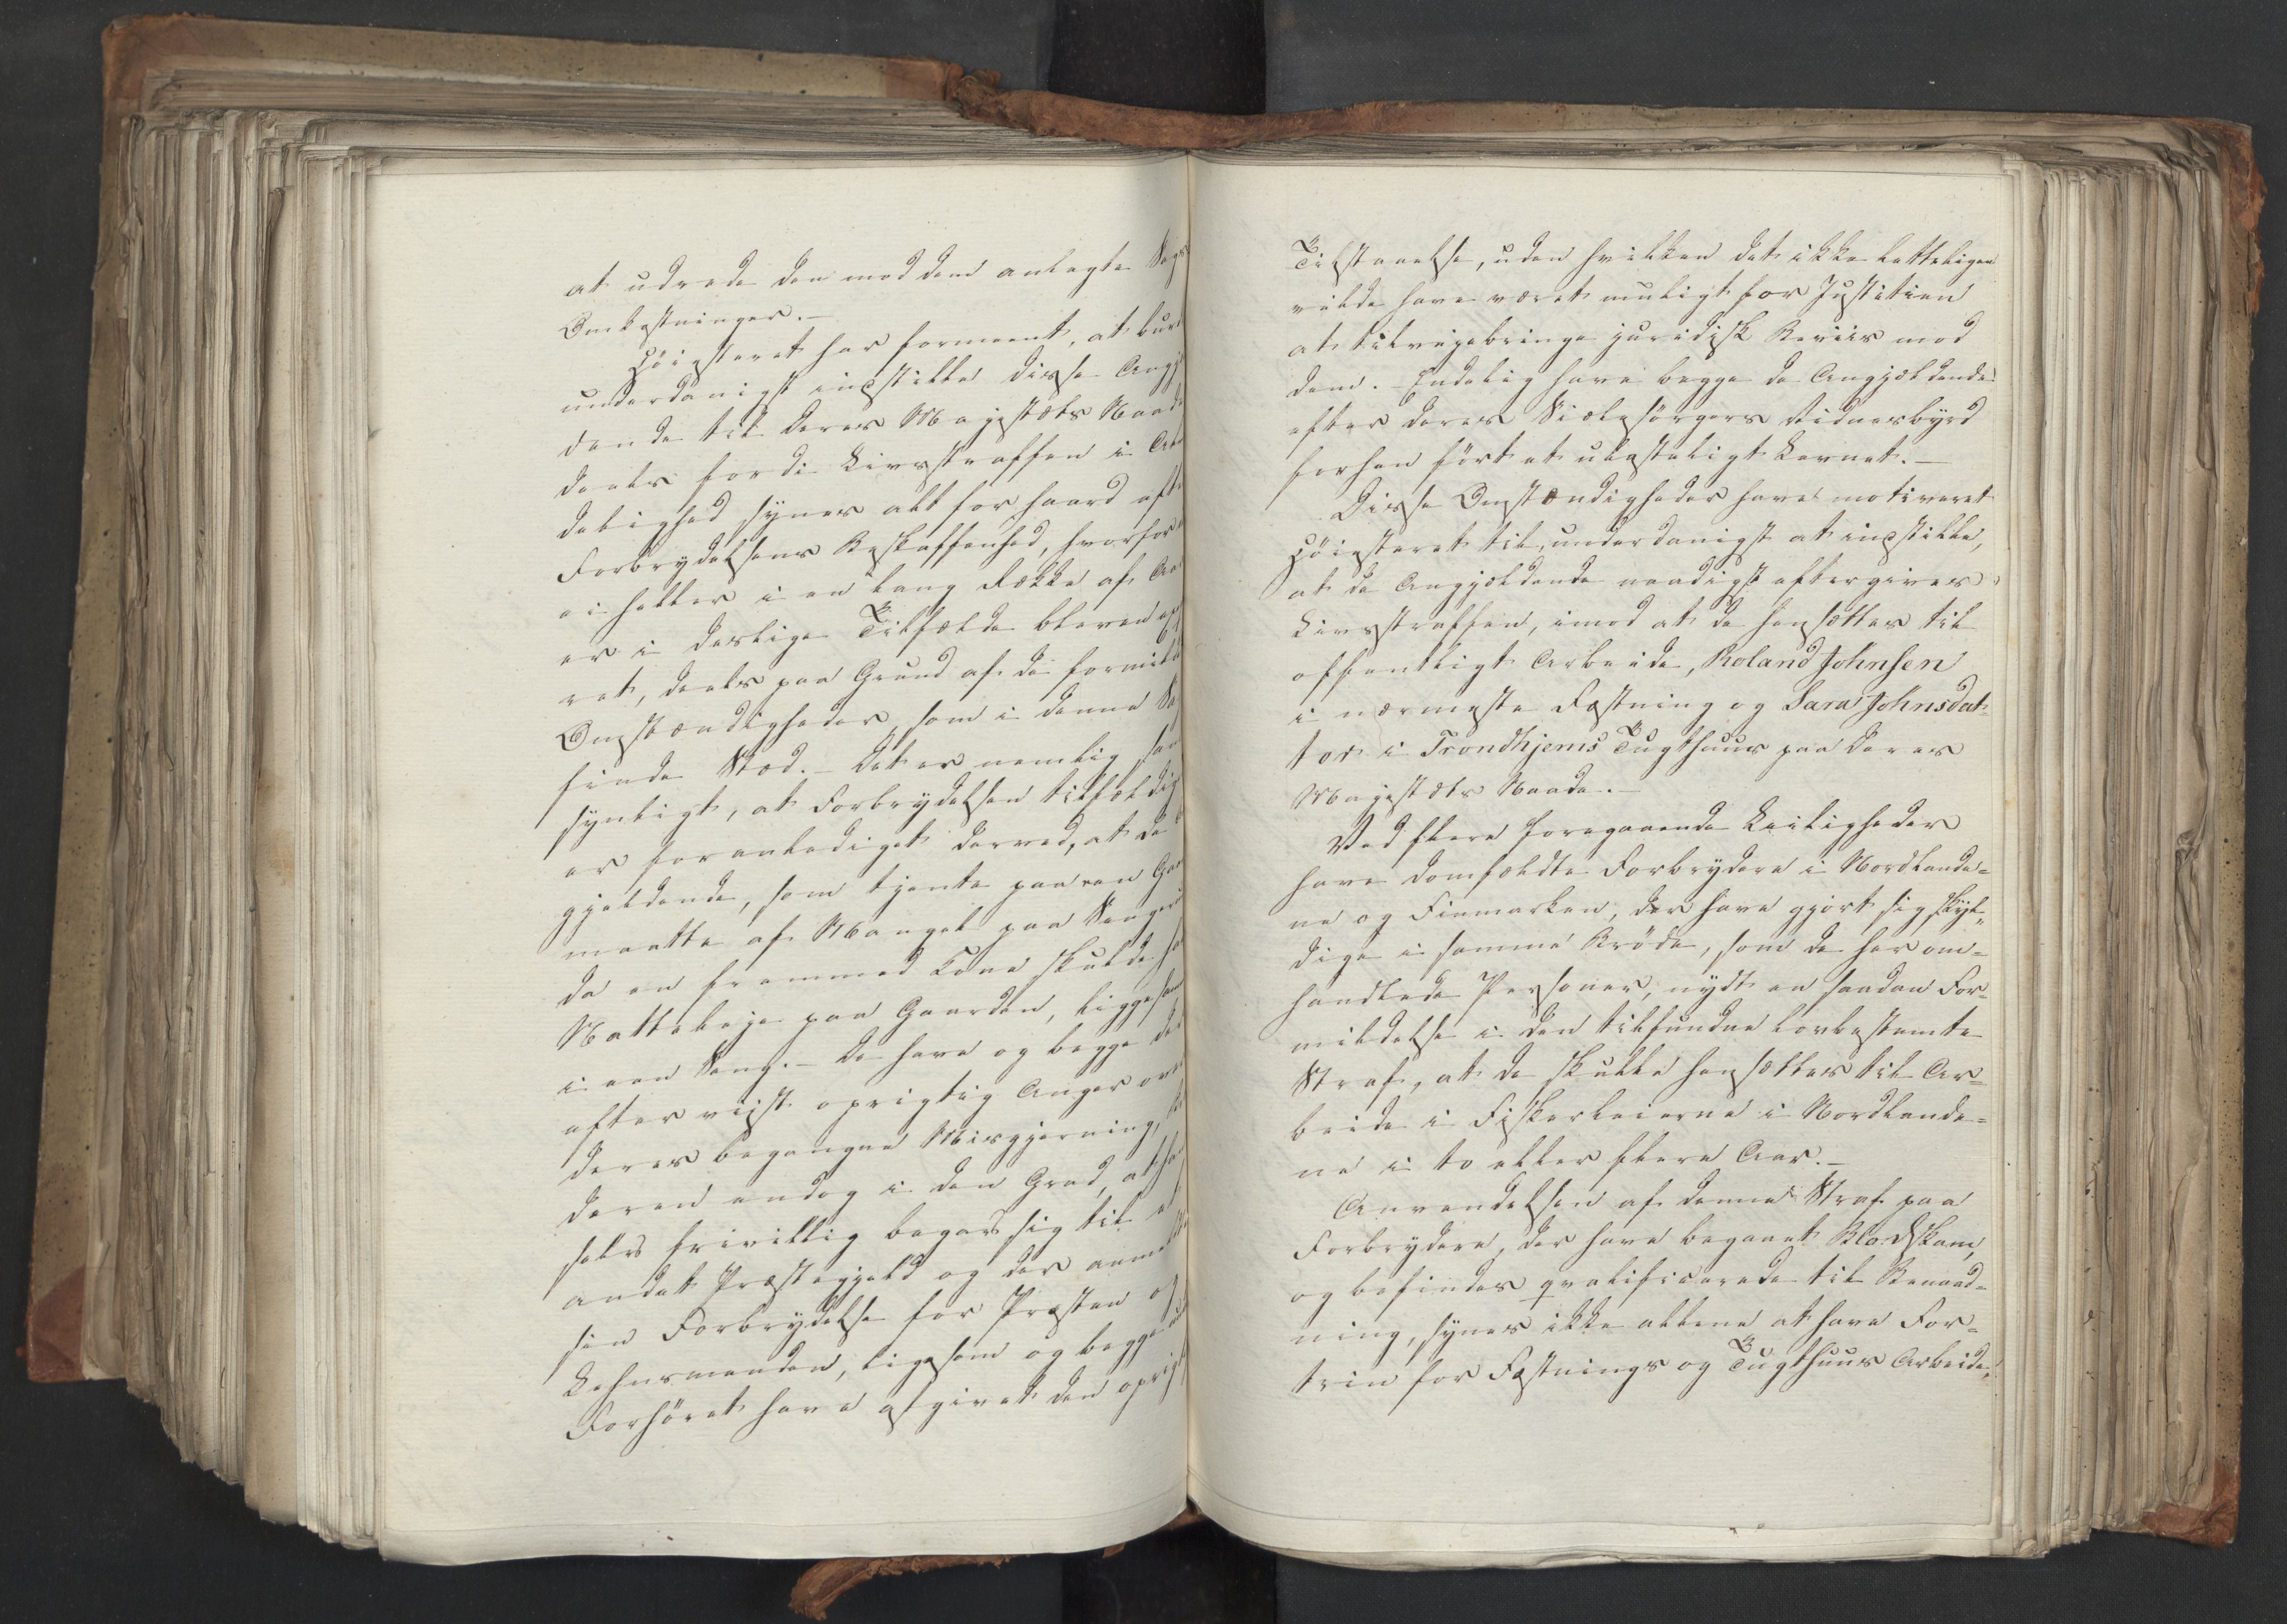 at udrede den mod dem anlagte Sags
Omkostninger. —
Høiesteret har formeent, at burde
underdanigst indstille disse Angj
dende til Deres Majestæts Naade
deels fordi Livsstraffen i Al
delighed synes alt for haard eft
Forbrydelsens Beskaffenhed, hvorfor
ei heller i en lang Række af Aar
er i deslige Tilfælde bleven
ret, deels paa Grund af de formild
Omstændigheder, som i denne Sa
finde Sted. — Det er nemlig san
synligt, at Forbrydelsen tilfældig
er foranlediget derved, at de
gjeldende, som tjente paa een Gaa
maatte af Mangel paa Senger
da en fremmed Kone skulde ha
Natteleje paa Gaarden, ligge sam
i een Seng. — De have og begge der
efter viist oprigtig Anger over
deres begangne Misgjerning,
deren endog i den Grad, at han
selv frivillig begav sig til et
andet Præstegjeld og der anmel
sin Forbrydelse for Præsten og
Lehnsmanden, ligesom og begge
Forhøret have afgivet den oprigt
Tilstaaelse, uden hvilken det ikke letteligen
vilde have været muligt for Justitien
at tilvejebringe juridisk Beviis mod
dem. – Endelig have begge de Angjældende
efter deres Siælesørgers Vidnesbyrd
forhen ført et ulasteligt Levnet. —
Disse Omstændigheder have motiveret
Høiesteret til, underdanigst at indstille,
at de Angjældende naadigst eftergives
Livsstraffen, imod at de hensættes til
offentligt Arbeide, Roland Johnsen
i nærmeste Fæstning og Sara Johnsdat-
ter i Trondhjems Tugthuus paa Deres
Majestæts Naade. —
Ved flere foregaaende Leiligheder
have domfældte Forbrydere i Nordlande=
ne og Finmarken, der have gjort sig skyl=
dige i samme Brøde, som de her om=
handlede Personer, nydt en saadan For=
mildelse i den tilfundne lovbestemte
Straf, at de skulle hensættes til Ar=
beide i Fiskerleierne i Nordlande=
ne i to eller flere Aar. —
Anvendelsen af denne Straf paa
Forbrydere, der have begaaet Blodskam,
og befindes qvalificerede til Benaad=
ning, synes ikke allene at have For=
trin for Fæstnings og Tugthuus Arbeide,